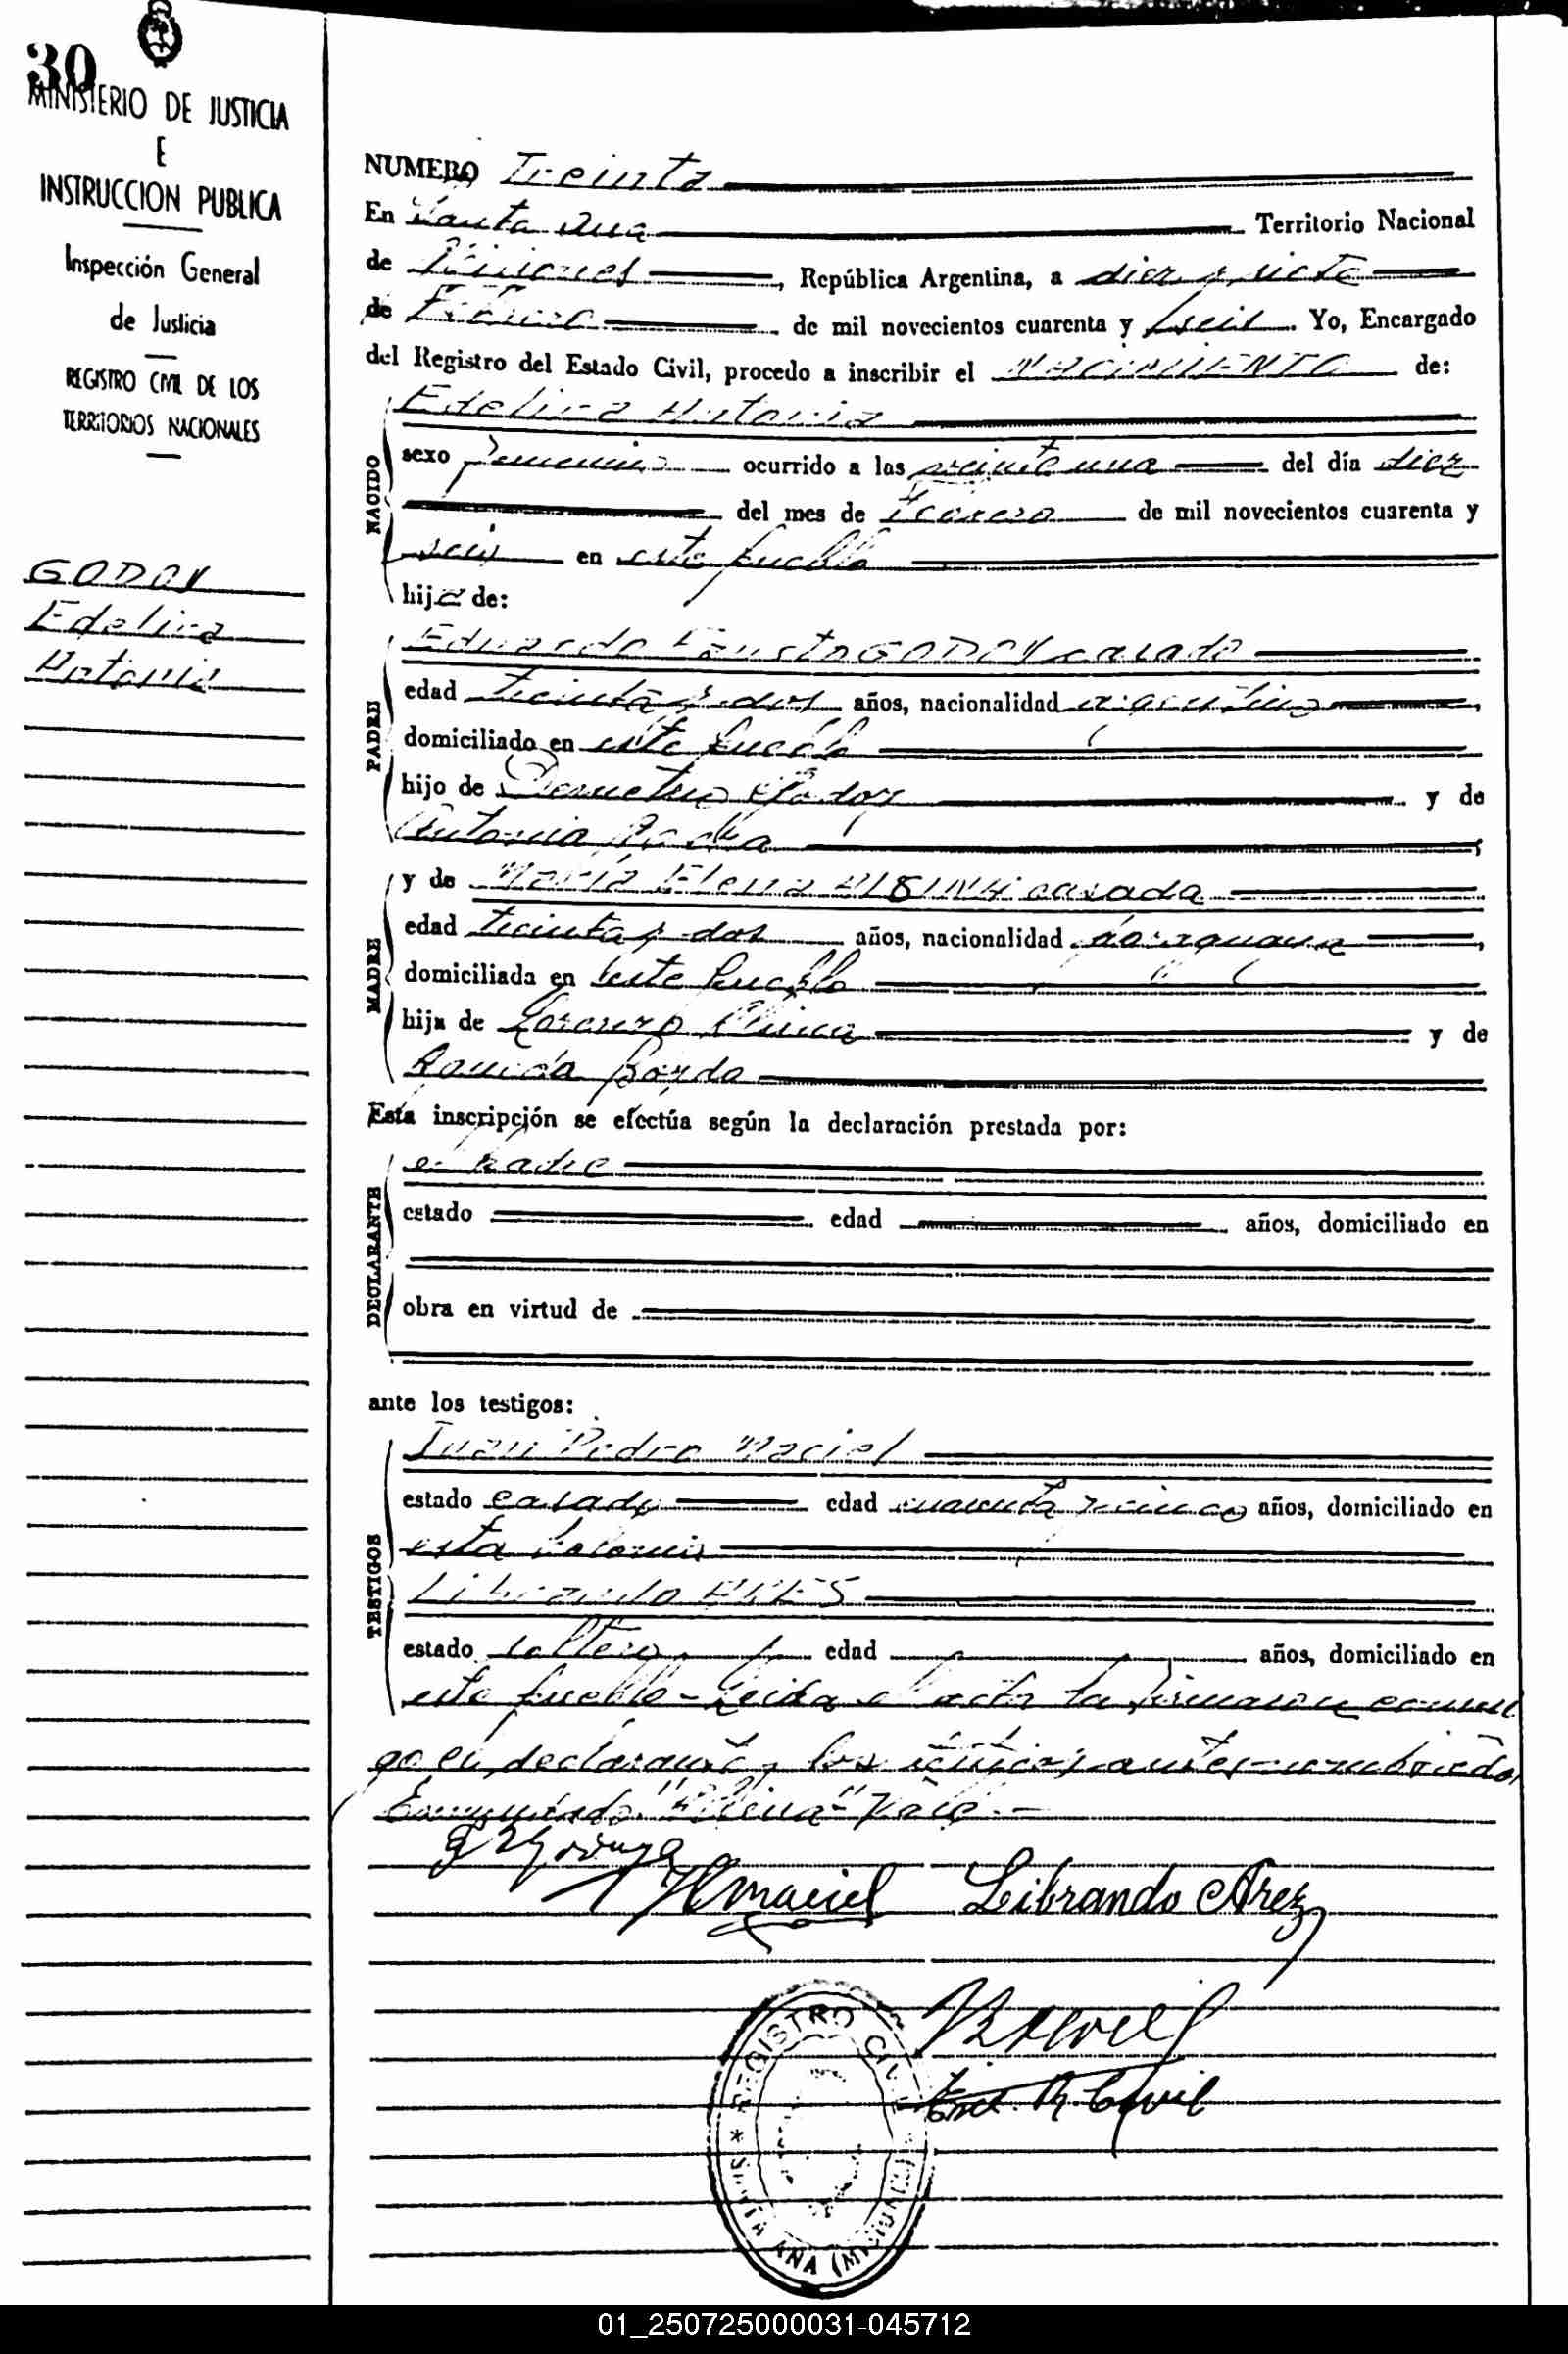 30
MINISTERIO DE JUSTICIA
E
INSTRUCCION PUBLICA
Inspección General
de Justicia
REGISTRO CIVIL DE LOS
TERRITORIOS NACIONALES
GODOY
Edelira
Antonia
NUMERO Treinta
En Santa Ana Territorio Nacional
de Misiones, República Argentina, a diez y siete
de Febrero de mil novecientos cuarenta y seis. Yo, Encargado
del Registro del Estado Civil, procedo a inscribir el NACIMIENTO de:
NACIDO
Edelira Antonia
sexo femenino ocurrido a las veinte una del día diez
del mes de febrero de mil novecientos cuarenta y
seis en este pueblo
hija de:
PADRE
Eduardo Fausto GODOY casado
edad treinta y dos años, nacionalidad argentino,
domiciliado en este pueblo
hijo de Demetrio Godoy y de
Antonia;
MADRE
y de María Elena casada
edad treinta y dos años, nacionalidad paraguaya,
domiciliada en este pueblo
hija de Lorenzo y de
Esta inscripción se efectúa según la declaración prestada por:
DECLARANTE
el padre
estado edad años, domiciliado en
obra en virtud de
ante los testigos:
TESTIGOS
Juan Pedro Maciel
estado casado edad cuarenta y cinco años, domiciliado en
esta Colonia
Librando ARES
estado soltero edad años, domiciliado en
este pueblo - Leida el acta la firmaron conmi
go el declarante y los testigos antes nombrados
Enmendado Vale.-
Maciel Librando Arez
Enc. R. Civil
REGISTRO CIVIL
* SANTA ANA (MISIONES)
01_250725000031-045712